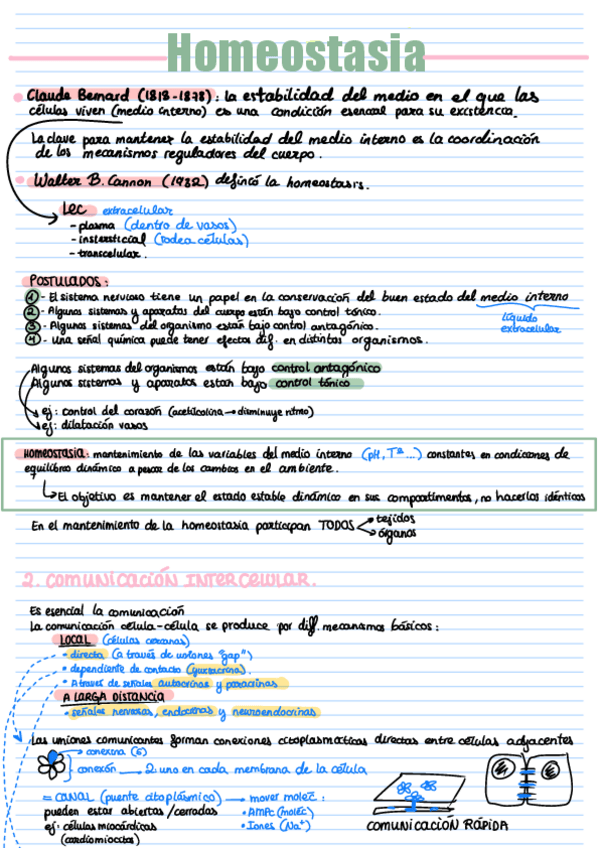 Homeostasia
Claude Bernard (1813-1878): la estabilidad del medio en el que las
células viven (medio interno) es una condición esencial para su existencia.
La clave para mantener la estabilidad del medio interno es la coordinación
de los mecanismos reguladores del cuerpo.
Walter B. Cannon (1932) definió la homeostasis.
LEC extracelular
- plasma (dentro de vasos)
- instersticial (rodea células)
- transcelular.
POSTULADOS:
1 - El sistema nervioso tiene un papel en la conservación del buen estado del medio interno
2 - Algunos sistemas y aparatos del cuerpo están bajo control tónico.
líquido
3 - Algunos sistemas del organismo están bajo control antagónico.
extracelular
4 - Una señal química puede tener efectos dif. en distintos organismos.
Algunos sistemas del organismo están bajo control antagónico
Algunos sistemas y aparatos estan bajo control tónico
ej: control del corazón (acetilcolina → disminuye ritmo)
ej: dilatación vasos
HOMEOSTASIA: mantenimiento de las variables del medio interno (pH, Tª...) constantes en condiciones de
equilibrio dinámico a pesar de los cambios en el ambiente.
El objetivo es mantener el estado estable dinámico en sus compartimentos, no hacerlos idénticos
En el mantenimiento de la homeostasia participan TODOS
tejidos
órganos
2. COMUNICACIÓN INTERCELULAR.
Es esencial la comunicación
La comunicación célula-célula se produce por dif. mecanismos básicos:
LOCAL (células cercanas)
• directa (a través de uniones "gap")
• dependiente de contacto (yuxtacrina).
• A través de señales autocrinas y paracrinas
A LARGA DISTANCIA
• señales nerviosas, endocrinas y neuroendocrinas
Las uniones comunicantes forman conexiones citoplasmáticas directas entre células adyacentes
conexina (6)
conexón 2 uno en cada membrana de la célula
= CANAL (puente citoplásmico) → mover moléc:
pueden estar abiertas/cerradas
• AMPc (moléc)
ej: células miocárdicas
• Iones (Na⁺)
(cardiomiocitos)
COMUNICACIÓN RÁPIDA